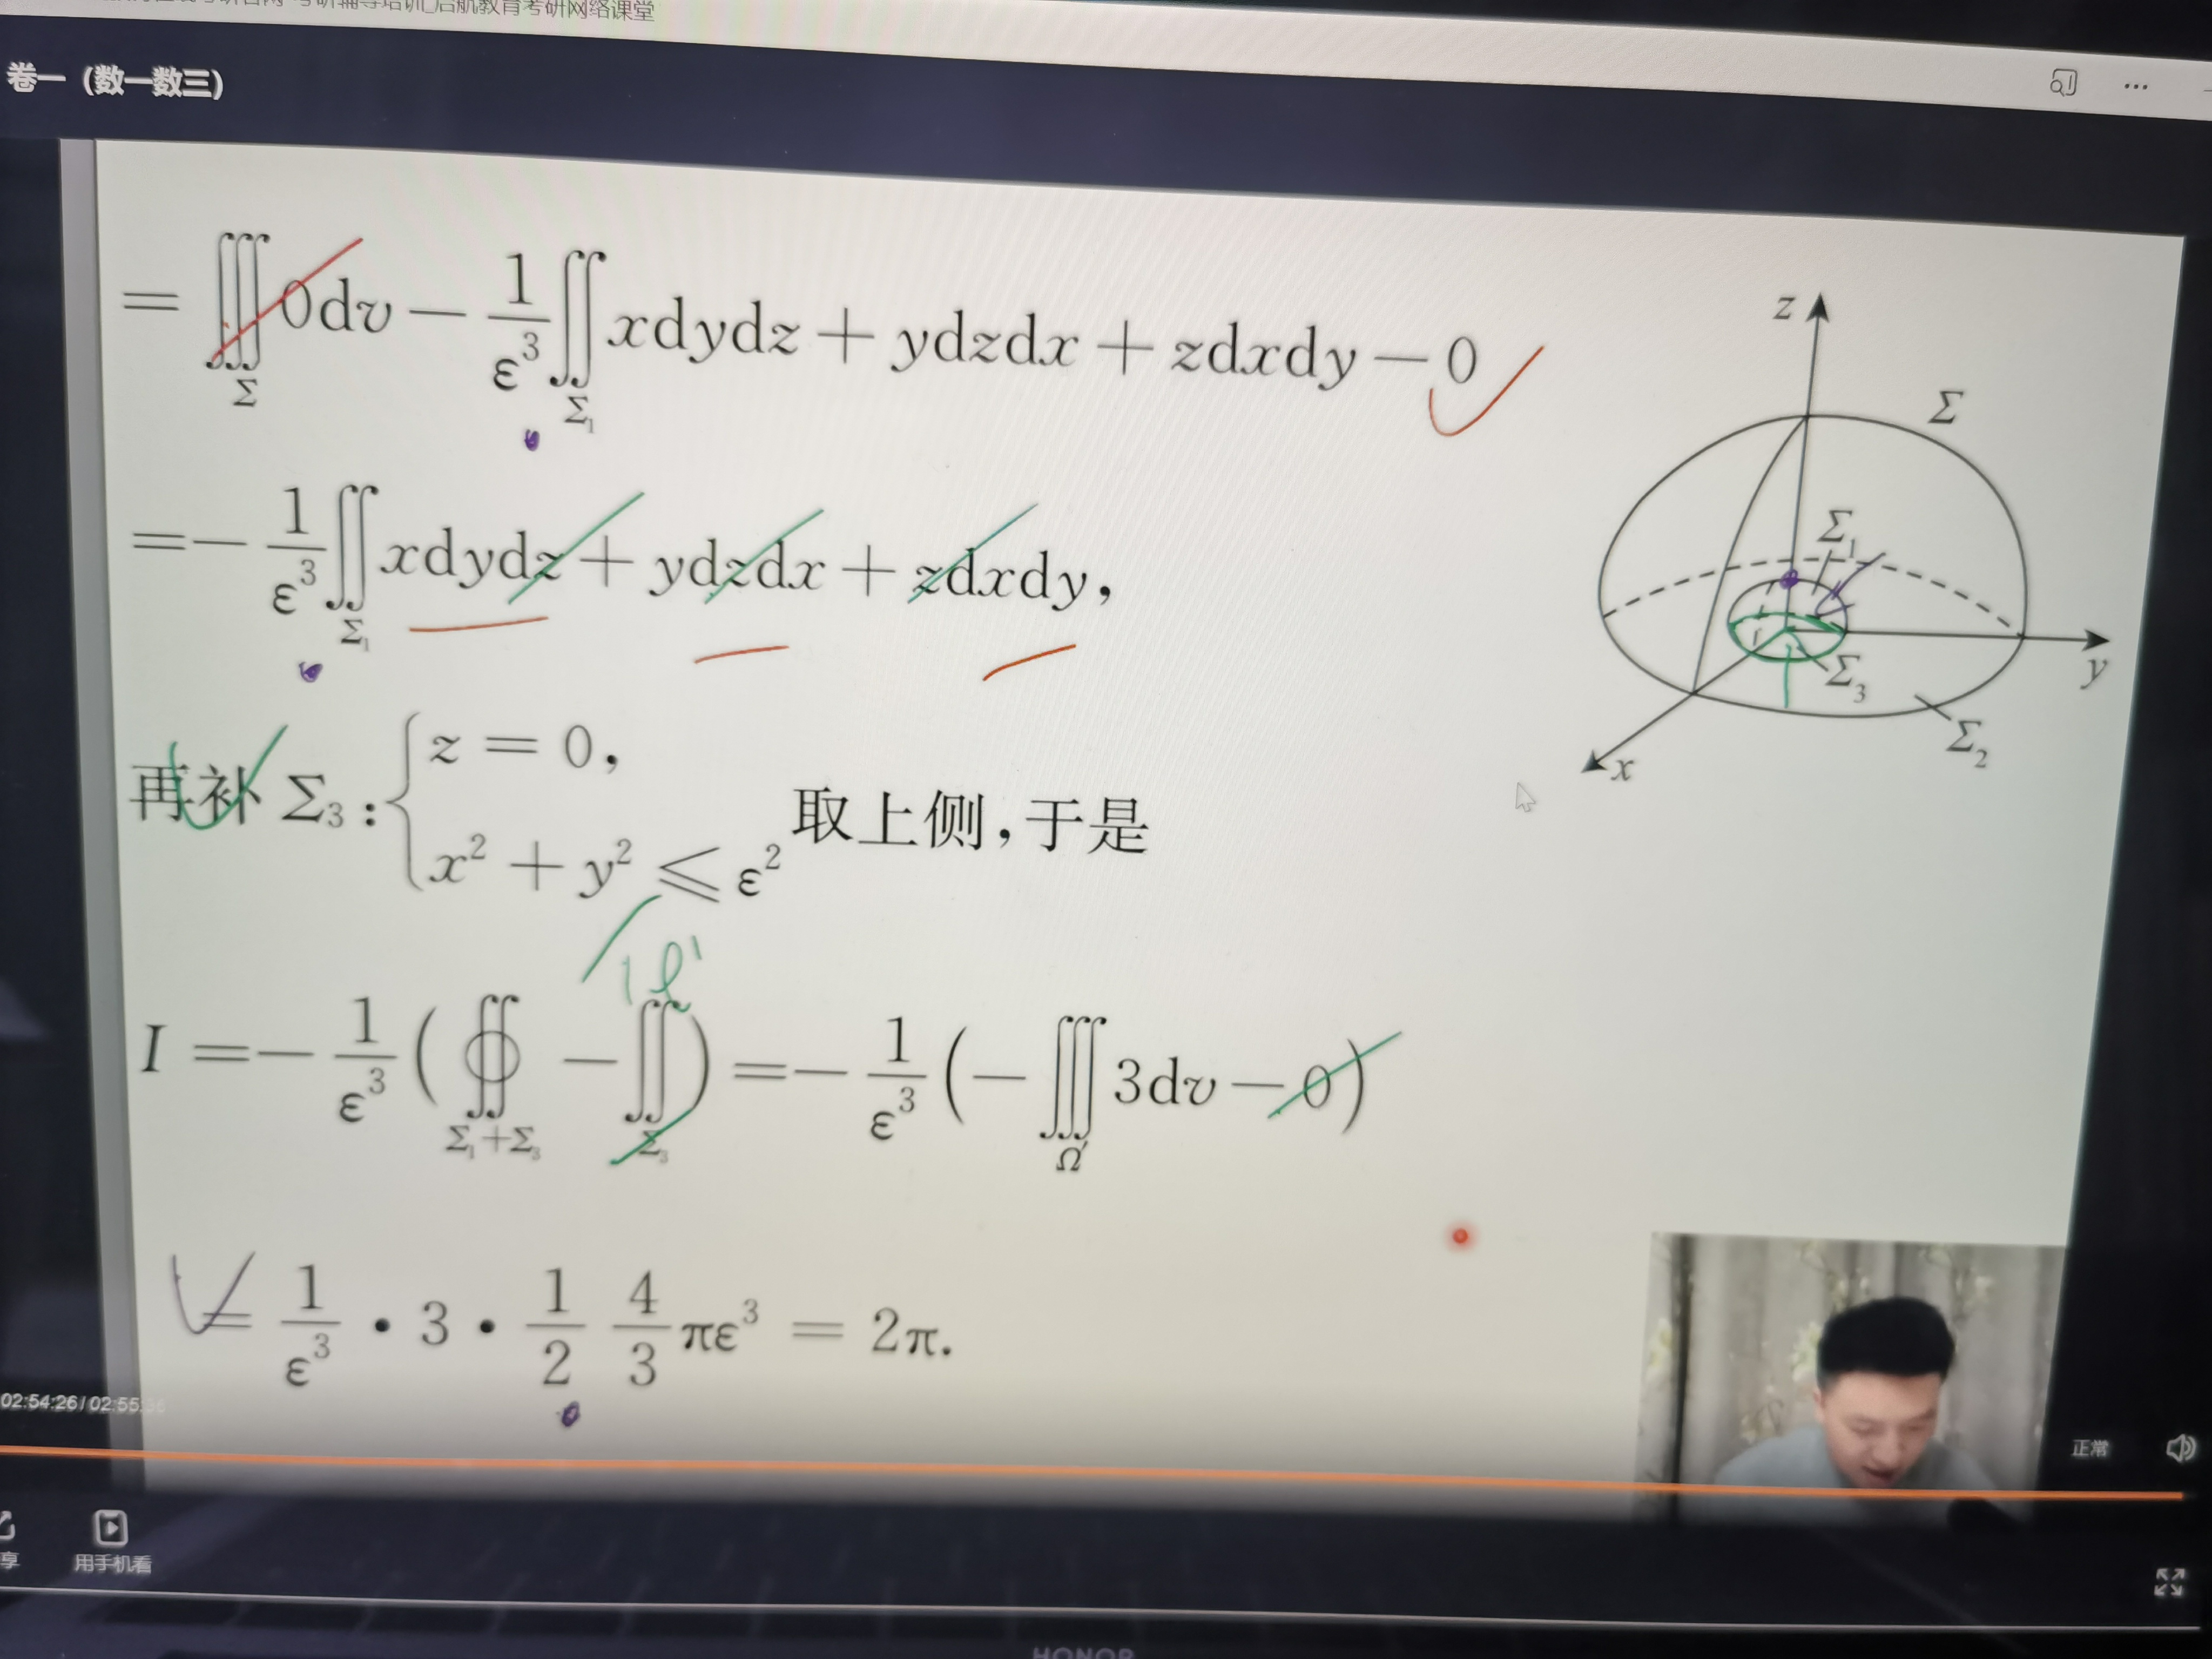 考研辅导培训_启航教育考研网络课堂
卷一（数一数三）
= ∭_Σ 0dv − 1/ε³ ∬_Σ₁ xdydz + ydzdx + zdxdy − 0
=− 1/ε³ ∬_Σ₁ xdydz + ydzdx + zdxdy,
再补 Σ₃: { z = 0, x² + y² ⩽ ε² 取上侧,于是
I =− 1/ε³ ( ∯_Σ₁+Σ₃ − ∬_Σ₃ ) =− 1/ε³ ( − ∭_Ω′ 3dv − 0 )
= 1/ε³ · 3 · 1/2 4/3 πε³ = 2π.
z
Σ
Σ₁
y
Σ₃
Σ₂
x
02:54:26/02:55:
正常
享
用手机看
HONOR